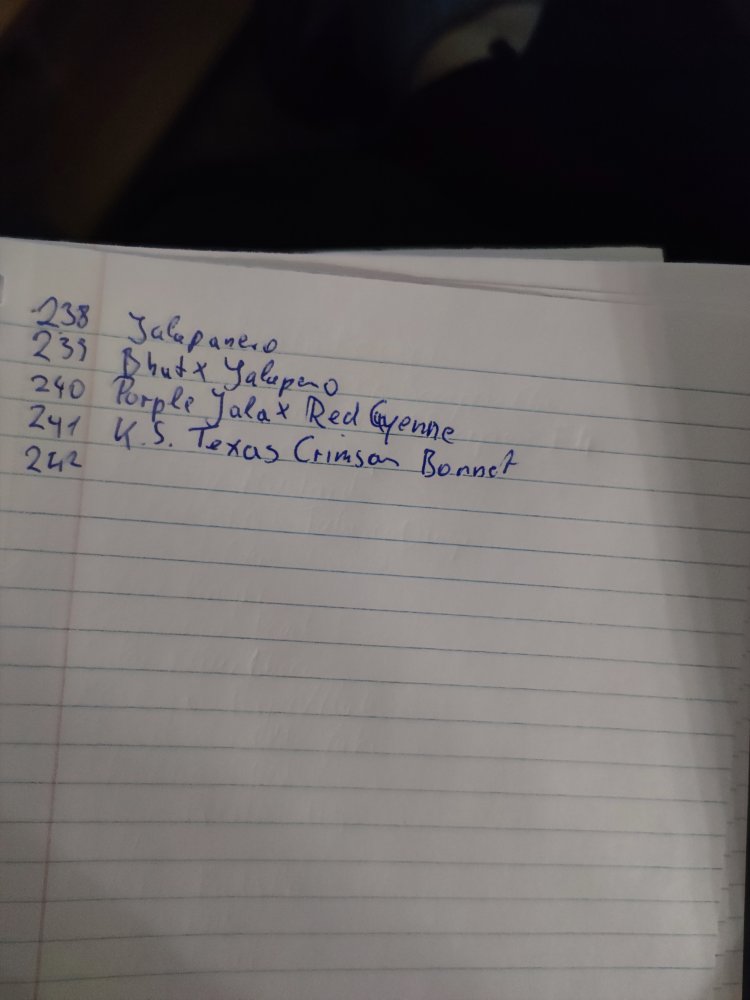 238 Jalapanero
239 Bhut x Jalapeno
240 Purple Jala x Red Cayenne
241 K.S. Texas Crimson Bonnet
242